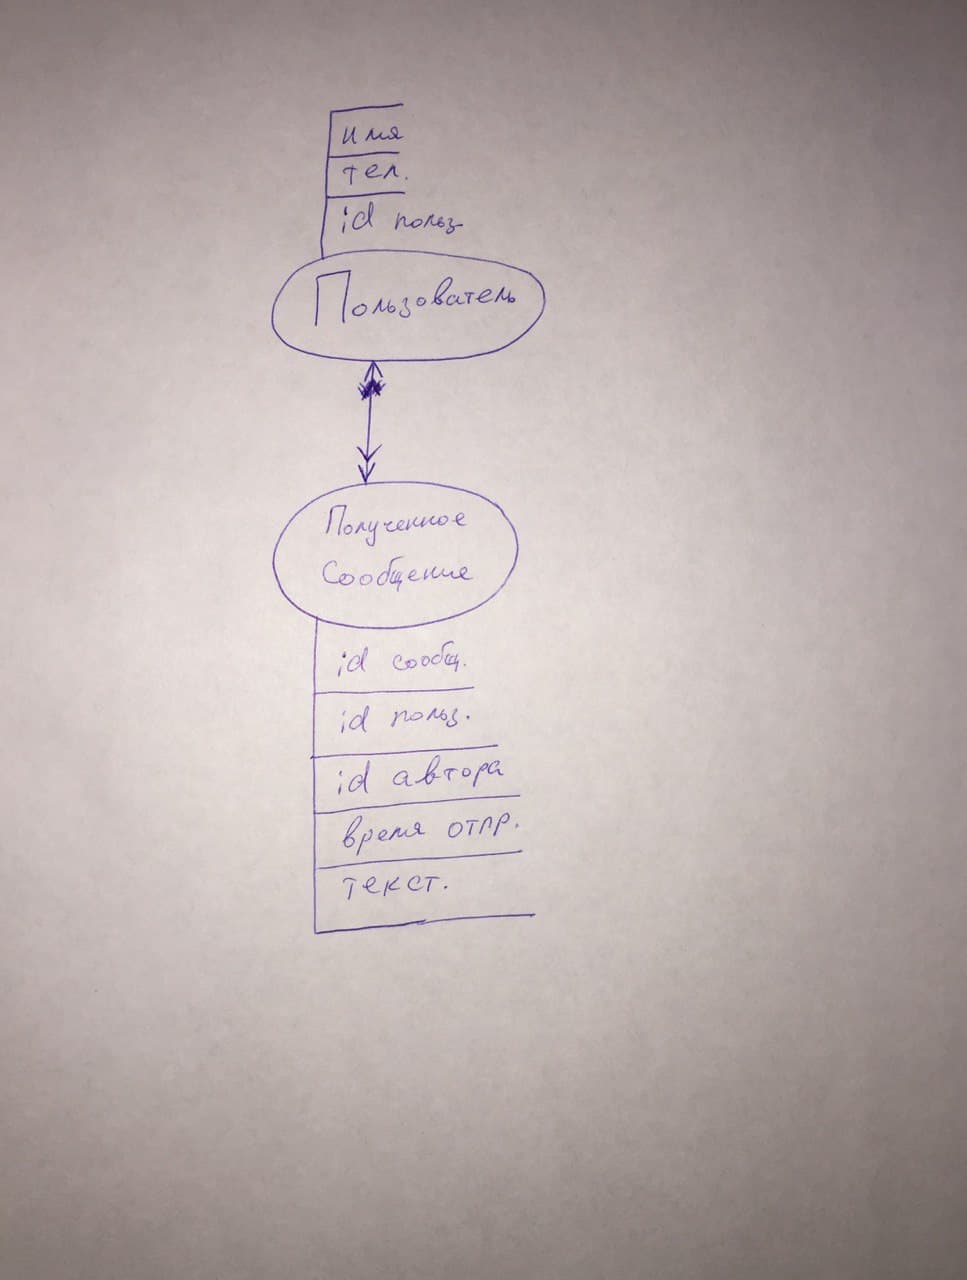 имя
тел.
id польз
Пользователь
Полученное
Сообщение
id сообщ.
id польз.
id автора
время отпр.
текст.